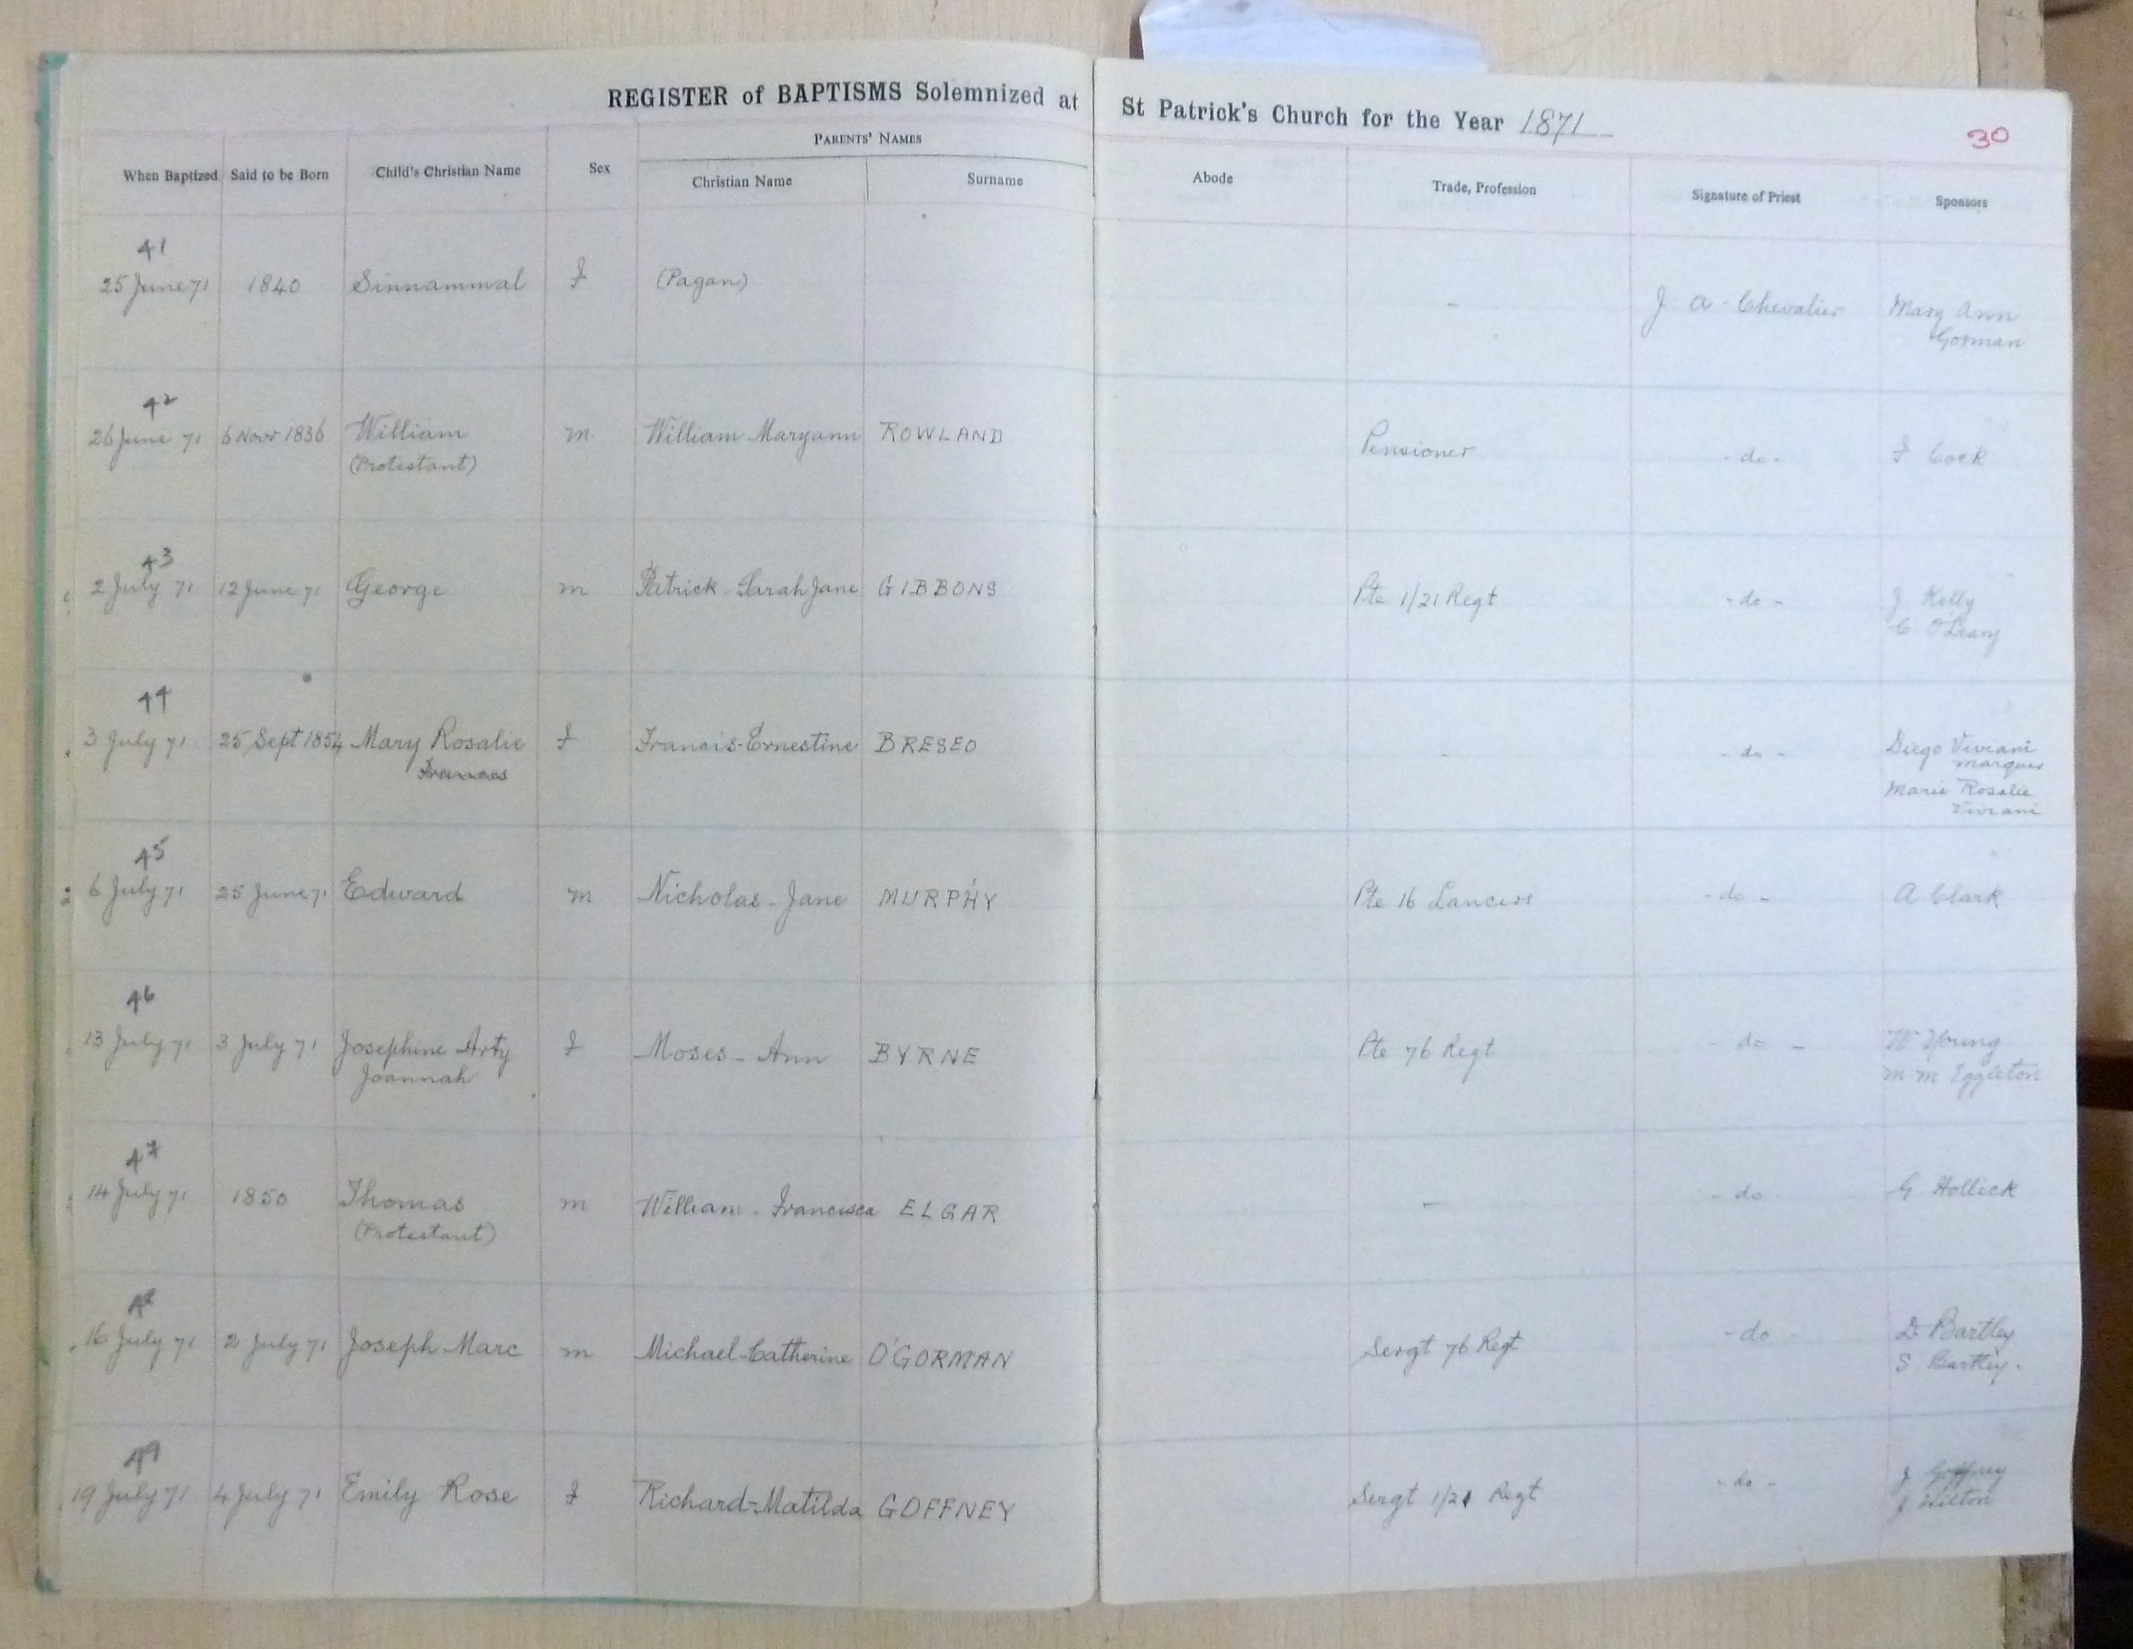 REGISTER of BAPTISMS Solemnized at St Patrick's Church for the Year 1871
30
When Baptized Said to be Born Child's Christian Name Sex PARENTS' NAMES Christian Name Surname Abode Trade, Profession Signature of Priest Sponsors
41
25 June 71 1840 Sinnammal F (Pagan) - J A Chevalier Mary Ann
Gorman
42
26 June 71 6 Novr 1836 William m. William Maryann ROWLAND Pensioner - do - F Cock
(Protestant)
43
2 July 71 12 June 71 George m Patrick - Sarah Jane GIBBONS Pte 1/21 Regt - do - J Kelly
C O'Leary
44
3 July 71 25 Sept 1854 Mary Rosalie F Francis-Ernestine BRESEO - - do - Diego Viviani
marques
Marie Rosalie
Viviani
45
6 July 71 25 June 71 Edward m Nicholas - Jane MURPHY Pte 16 Lancers - do - A Clark
46
13 July 71 3 July 71 Josephine Arty F Moses - Ann BYRNE Pte 76 Regt - do - W Young
Joannah m m Eggleton
47
14 July 71 1850 Thomas m William - Francisca ELGAR - - do - G. Hollick
(Protestant)
48
16 July 71 2 July 71 Joseph Marc m Michael-Catherine O'GORMAN Sergt 76 Regt - do - D. Bartley
S Bartley.
49
19 July 71 4 July 71 Emily Rose F Richard-Matilda GOFFNEY Sergt 1/21 Regt - do - J Goffney
J Hilton